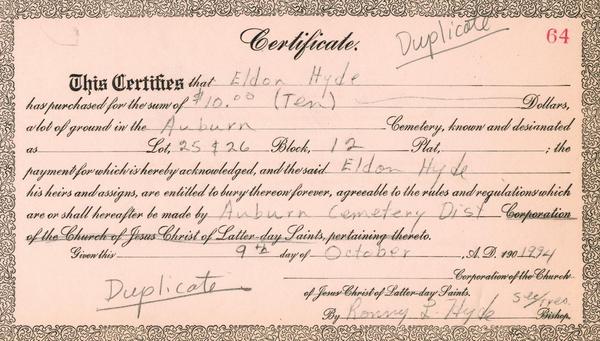 Duplicate
64
Certificate.
This Certifies that Eldon Hyde
has purchased for the sum of $10.00 (Ten) Dollars,
a lot of ground in the Auburn Cemetery, known and designated
as Lot, 25 & 26 Block, 12 Plat, ; the
payment for which is hereby acknowledged, and the said Eldon Hyde
his heirs and assigns, are entitled to bury thereon forever, agreeable to the rules and regulations which
are or shall hereafter be made by Auburn Cemetery Dist Corporation
of the Church of Jesus Christ of Latter-day Saints, pertaining thereto.
Given this 9th day of October , A.D. 190 1994
Corporation of the Church
Duplicate
of Jesus Christ of Latter-day Saints.
By Ronny L. Hyde Sec/Treo. Bishop.